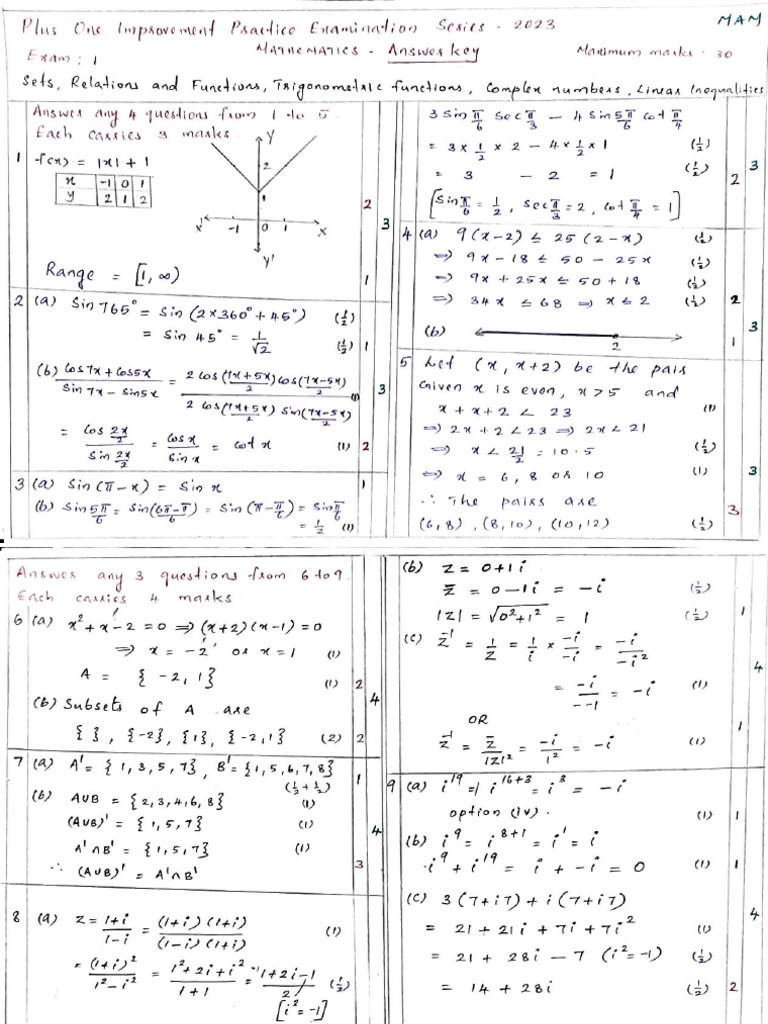 Plus One Improvement Practice Examination Series - 2023
MAM
Exam : 1
MATHEMATICS - Answer key
Maximum marks : 30
Sets, Relations and Functions, Trigonometric functions, Complex numbers, Linear Inequalities
Answer any 4 questions from 1 to 5.
Each carries 3 marks
1 f(x) = |x| + 1
x -1 0 1
y 2 1 2
Y
2
1
X' -1 0 1 X
Y'
2
3
Range = [1, ∞) 1
2 (a) Sin 765° = Sin (2×360° + 45°) (½)
= Sin 45° = 1/√2 (½) 1
(b) (Cos7x + Cos5x)/(Sin 7x – Sin5x) = (2 Cos((7x+5x)/2) Cos((7x-5x)/2))/(2 Cos((7x+5x)/2) Sin((7x-5x)/2)) (1)
3
= (Cos 2x/2)/(Sin 2x/2) = Cos x/Sin x = Cot x (1) 2
3 (a) Sin (π – x) = Sin x 1
(b) Sin 5π/6 = Sin((6π-π)/6) = Sin (π – π/6) = Sin π/6
= 1/2 (1)
3 Sin π/6 Sec π/3 – 4 Sin 5π/6 Cot π/4
= 3 × 1/2 × 2 – 4 × 1/2 × 1 (½)
= 3 – 2 = 1 (½) 2 3
[Sin π/6 = 1/2, Sec π/3 = 2, Cot π/4 = 1]
4 (a) 9(x-2) ≤ 25(2-x) (½)
⇒ 9x - 18 ≤ 50 - 25x (½)
⇒ 9x + 25x ≤ 50 + 18
⇒ 34x ≤ 68 ⇒ x ≤ 2 (½) 2
(b) 2 1 3
5 Let (x, x+2) be the pair
Given x is even, x > 5 and
x + x + 2 < 23 (1)
⇒ 2x + 2 < 23 ⇒ 2x < 21
⇒ x < 21/2 = 10.5 (½)
⇒ x = 6, 8 or 10 (1) 3
∴ The pairs are
(6,8), (8,10), (10,12) (½) 3
Answer any 3 questions from 6 to 9.
Each carries 4 marks
6 (a) x² + x – 2 = 0 ⇒ (x+2)(x-1) = 0
⇒ x = -2 or x = 1 (1)
A = { -2, 1} (1) 2
4
(b) Subsets of A are
{ }, {-2}, {1}, {-2,1} (2) 2
7 (a) A' = {1,3,5,7}, B' = {1,5,6,7,8} 1
(½ + ½)
(b) A∪B = {2,3,4,6,8} (1)
(A∪B)' = {1,5,7} (1)
4
A'∩B' = {1,5,7} (1)
∴ (A∪B)' = A'∩B' 3
8 (a) Z = (1+i)/(1-i) = ((1+i)(1+i))/((1-i)(1+i)) (1)
= (1+i)²/(1²-i²) = (1²+2i+i²)/(1+1) = (1+2i-1)/2 (½)
[i² = -1]
(b) Z = 0+1i
Z̄ = 0-1i = -i (½)
|Z| = √(0²+1²) = 1 (½) 1
(c) Z⁻¹ = 1/Z = 1/i × -i/-i = -i/-i²
4
= -i/--1 = -i (1)
OR 1
Z⁻¹ = Z̄/|Z|² = -i/1² = -i (1)
9 (a) i¹⁹ = i¹⁶⁺³ = i³ = -i
option (iv). (1) 1
(b) i⁹ = i⁸⁺¹ = i¹ = i
i⁹ + i¹⁹ = i + -i = 0 (1) 1
(c) 3(7+i7) + i(7+i7)
4
= 21 + 21i + 7i + 7i² (1)
= 21 + 28i – 7 (i²=-1) (½)
= 14 + 28i (½) 2